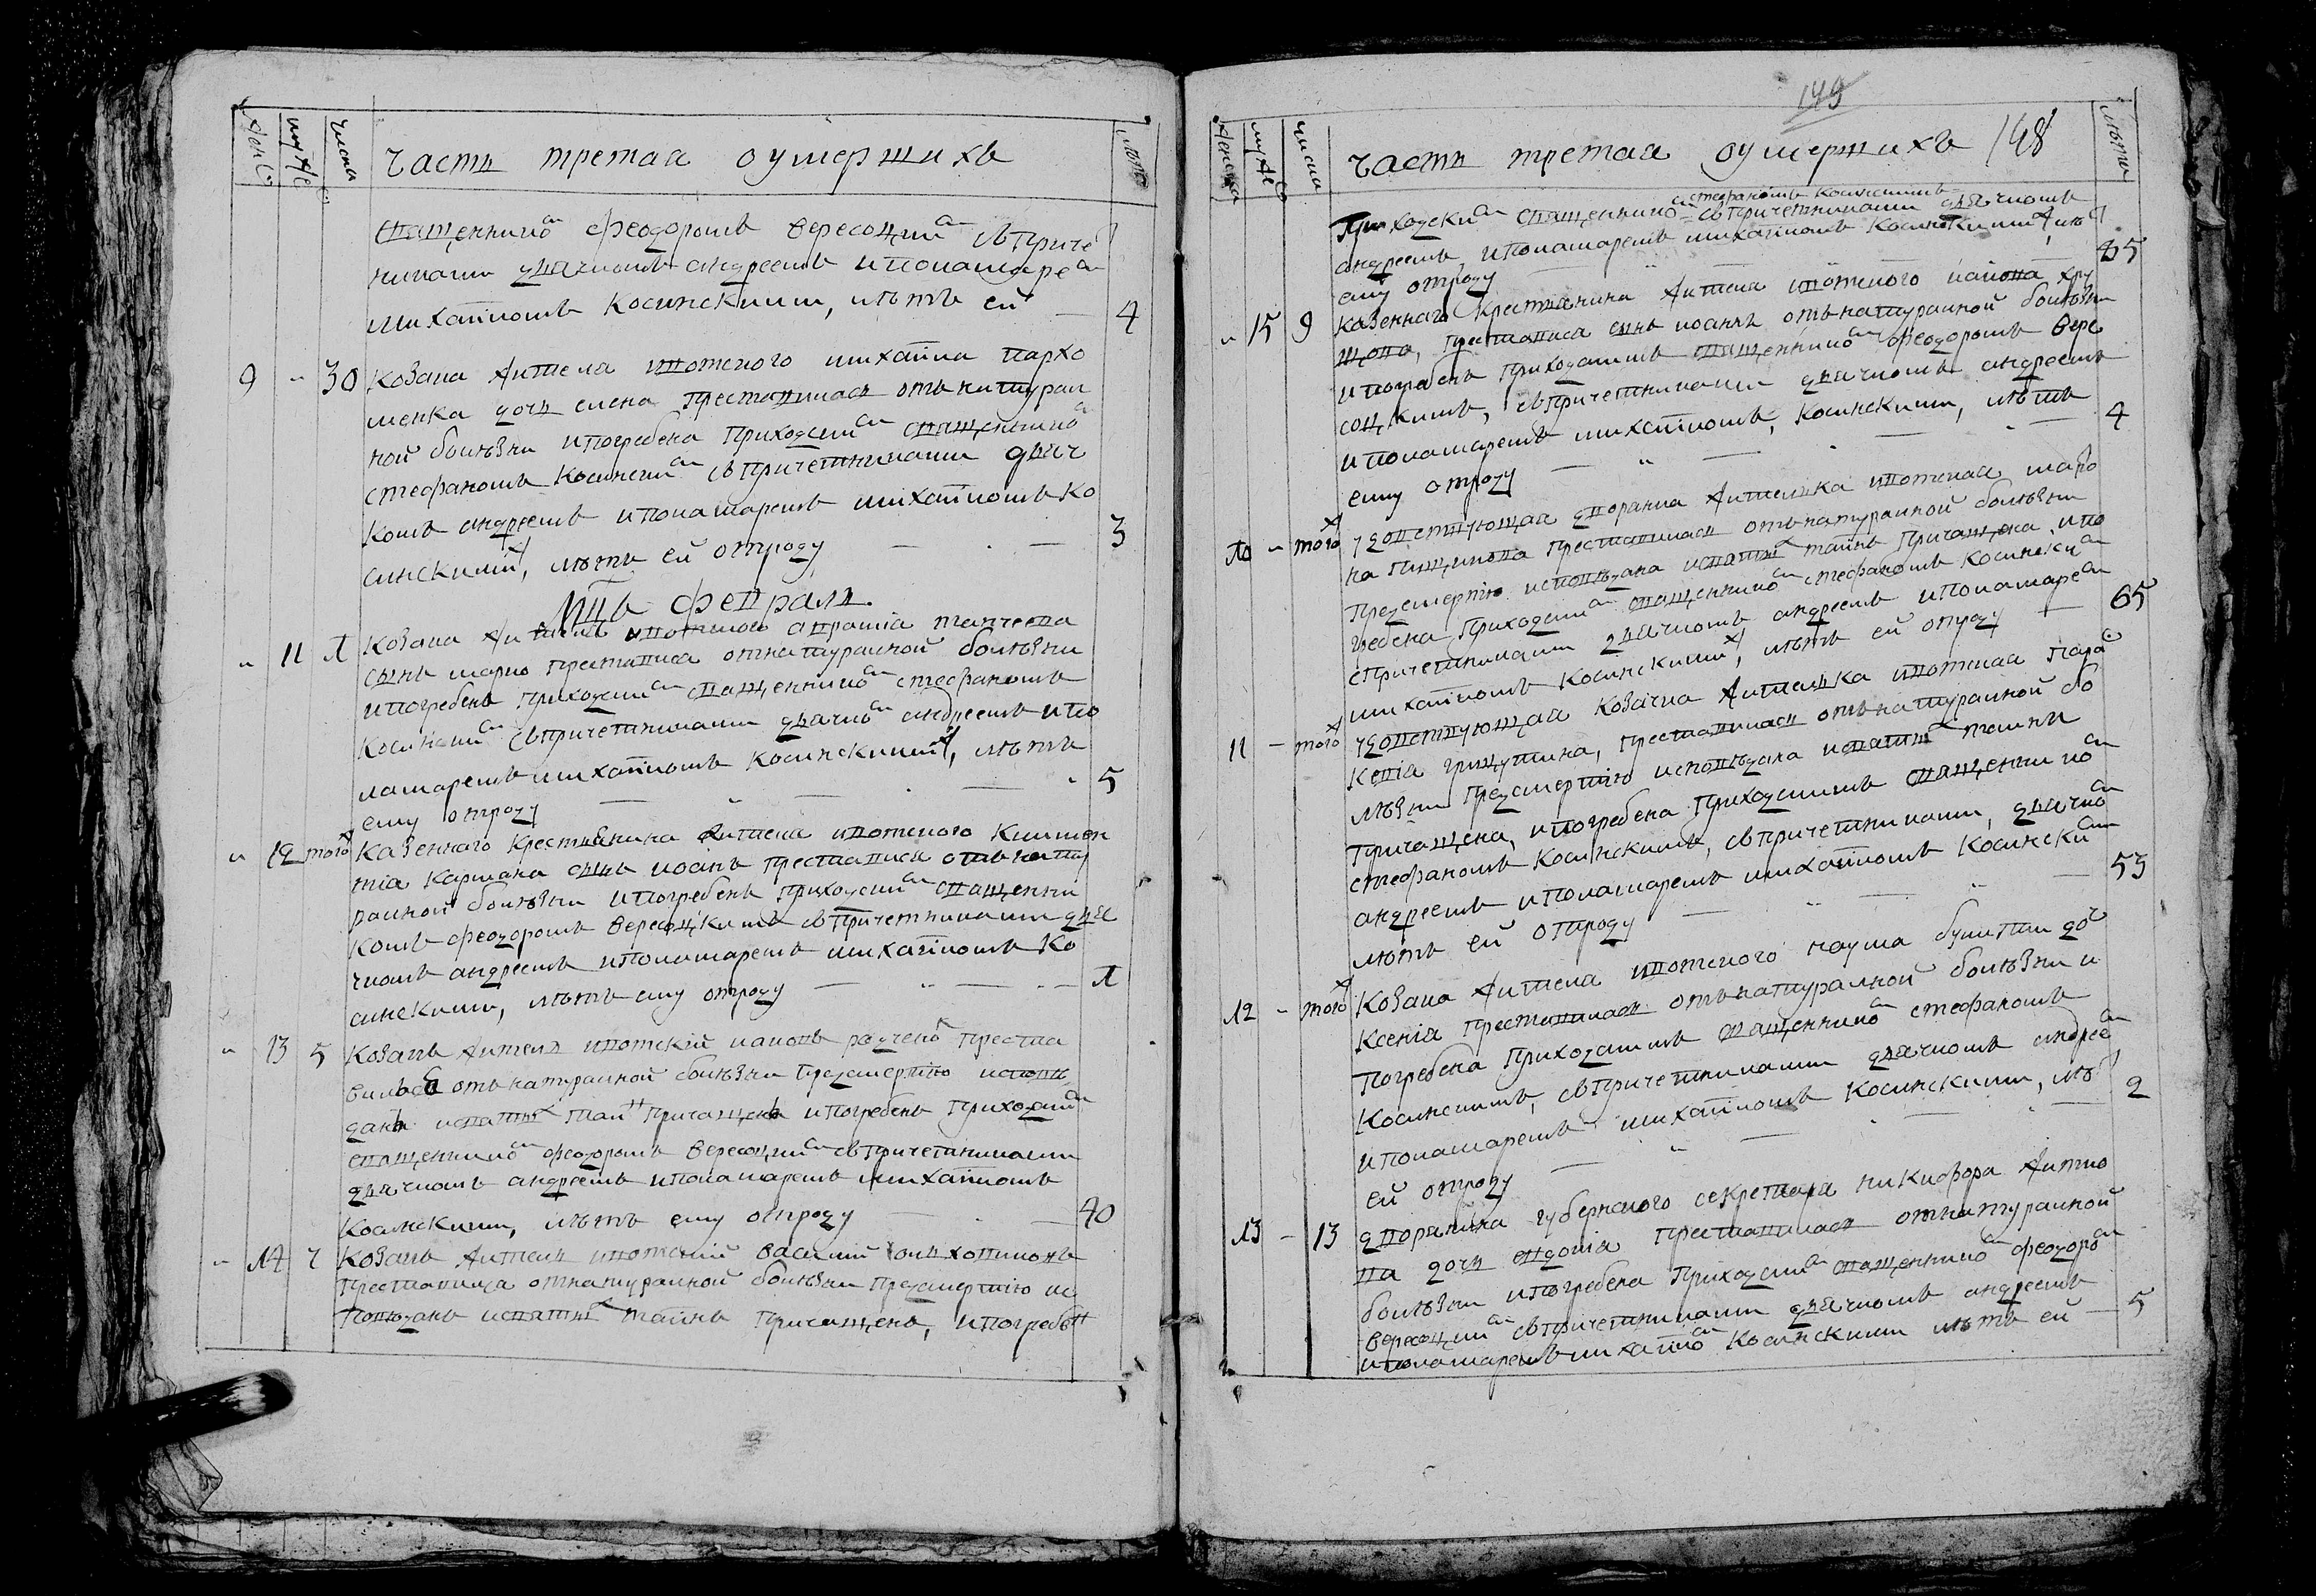 женс. муж. число Часть третая оумершихъ лѣта
священникомъ феодоромъ вересоцкимъ съ приче
никами дьячкомъ андреемъ и пономаремъ
михайломъ Косинскими, лѣтъ ей — 4
9 " 30 Козака жителя ивотского михаила пархо
менка дочь елена преставилась отъ натурал
ной болѣзни и погребена приходскимъ священникомъ
стефаномъ Косинскимъ съ причетниками дьяч
комъ андреемъ и пономаремъ михайломъ Ко
синскими, лѣтъ ей отроду — 3
Мць февраль
" 11 1 Козака жителя ивотского
сынъ марко преставися от натуралной болѣзни
и погребенъ приходскимъ священникомъ стефаномъ
Косинскимъ съ причетниками дьячкомъ андреемъ и по
намаремъ михайломъ Косинскими, лѣтъ
ему отроду — " — 5
" 12 того ж Казенного крестьянина жителя ивотского Климен
тіа Кармана сынъ иоанъ преставися отъ нату
ралной болѣзни и погребенъ приходскимъ священни
комъ феодоромъ вересоцкимъ съ причетниками дья
чкомъ андреемъ и пономаремъ михайломъ Ко
синскими, лѣтъ ему отроду — " — 1
" 13 5 Козакъ житель ивотскій иаковъ преста
вился отъ натуралной болѣзни предсмертію исповѣ
данъ и святыхъ таинъ причащенъ и погребенъ приходскимъ
священникомъ феодоромъ вересоцкимъ съ причетниками
дьячкомъ андреемъ и пономаремъ михайломъ
Косинскими, лѣтъ ему отроду — 70
" 14 7 Козакъ житель ивотскій василий
преставился от натуралной болѣзни предсмертію ис
повѣданъ и святыхъ таинъ причащенъ, и погребен
149
женска мужеск числа Часть третая оумершихъ 148 лѣта
стефаномъ Косинскимъ
Приходским священником съ причетниками дьячкомъ
андреемъ и пономаремъ михайломъ Косинскими, лѣт
ему отроду — " — 85
" 15 9 Казенного крестьянина жителя ивотского иакова хру
щова, преставися сынъ иоаннъ отъ натуралной болѣзни
и погребенъ приходскимъ священникомъ феодоромъ вере
соцкимъ, съ причетниками дьячкомъ андреемъ
и пономаремъ михайломъ, Косинскими, лѣтъ
ему отроду — " — 4
10 " того ж вдовствующая дворянка жителька ивотская марф
преставилась отъ натуралной болѣзни
предсмертію исповѣдана и святыхъ таинъ причащена, и по
гребена приходским священником стефаномъ Косинским
с причетниками дьячкомъ андреемъ и пономарем
михайломъ Косинскими, лѣтъ ей отроду — 65
11 " того ж вдовствующая козачка жителька ивотская парас
кевіа преставилась отъ натуралной бо
лѣзни предсмертію исповѣдана и святыхъ таинъ
причащена, и погребена приходскимъ священником
стефаномъ Косинскимъ, съ причетниками, дьячком
андреемъ и пономаремъ михайломъ Косинским
лѣтъ ей отроду — " — 53
12 " того ж Козака жителя ивотского наума доч
Ксеніа преставилась отъ натуралной болѣзни и
погребена приходскимъ священником стефаномъ
Косинскимъ, съ причетниками дьячкомъ андреем
и пономаремъ михайломъ Косинскими, лѣт
ей отроду — " — 2
13 " 13 дворянина губернского секретара никифора литво
ва дочь евдокіа преставилась от натуралной
болѣзни и погребена приходским священником феодором
вересоцким съ причетниками дьячкомъ андреемъ
и пономаремъ михайлом Косинскими лѣтъ ей — 5